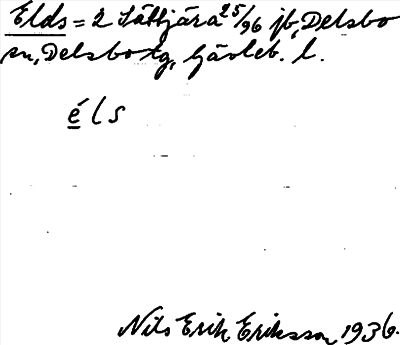 Elds = 2 Sättjära 25/96 jb, Delsbo
sn, Delsbo tg, Gävleb. l.
é l s
Nils Erik Eriksson 1936.